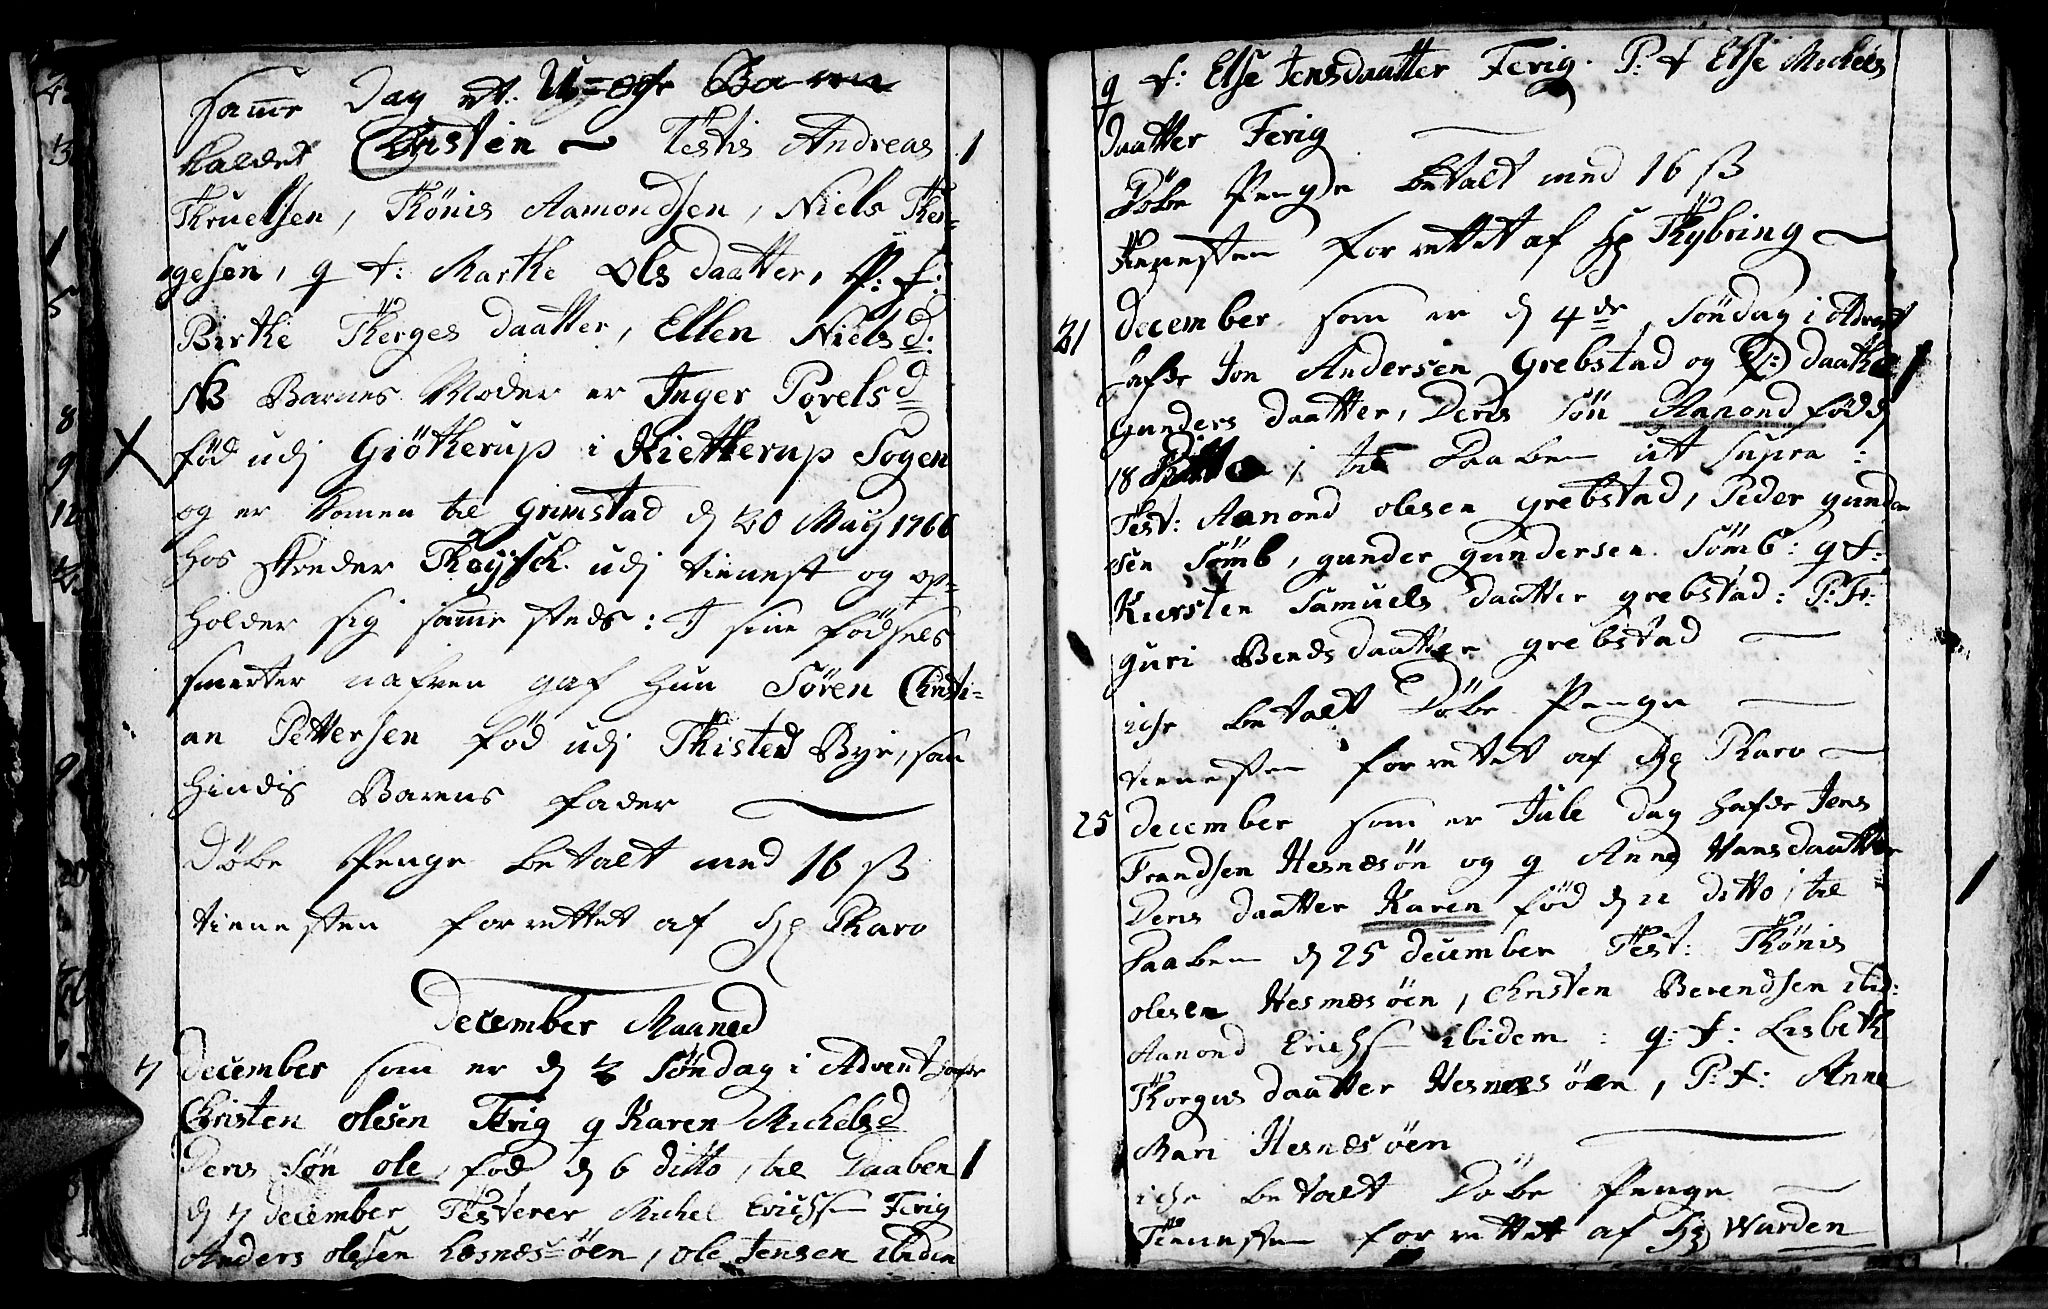 Samme Dag et: U=ægte Barn
kaldet Christen ~ Testis Andreas 1
Thruelsen, Thönis Aamondsen, Niels Ther-
gesen, q f: Marthe Olsdaatter, P: f:
Birthe Therges daatter, Ellen Niels d:
NB Barnes Moder er Inger Povels d
X fød udj Giötherup i Kietterup Sogen
og er komen til Grimstad d 20 Maÿ 1766
hos skreder Thoÿsch. udj tienest og op-
holder sig samme steds: I sine fødsels
smerter nafven gaf hun Sören Christi-
an Pettersen fød udj Thisted Bÿe, som
hindis Barens fader
Döbe Penge betalt med 16 ß
tienesten forrettet af Hr Pharo
December Maaned
7 December som er d 2 Söndag i Advent hafde
Christen olesen Ferig q Karen Michels d
Deris Søn ole, fød d 6 ditto, til Daaben 1
d 7 December Testerer Michel Erichs Ferig
Anders olesen hæsnæs=öen, ole Jensen ibidem
q f: Else Jensdaatter Ferig. P: f Else Michels
daatter Ferig
Döbe Penge betalt med 16 ß
tienesten forrettet af Hr Thÿbring ~
21 December som er d 4de Söndag i Advent
hafde Jon Andersen Grebstad og q: daathe 1
Gunders daatter, Deris Søn Aanond fød d
18 Ditto, til Daaben ut supra:
Test: Aanond olesen grebstad, Peder gunder
sen Sömb, gunder gundersen Sömb: q f:
Kiersten Samuels daatter grebstad: P: F:
guri Bends daatter grebstad
iche betalt Döbe Penge
tienesten forrettet af Hr Pharo ~
25 December som er Jule Dag hafde Jens
Frandsen Hesnæsøn og q Anne Hansdaatter
Deris daatter Karen fød d 22 ditto, til 1
Daaben d 25 december Test: Thönis
olesen Hesnæsöen, Christen Berendsen ibid:
Aanond Erichs ibidem: q: f: Lisbeth
Thorgus daatter Hesnæsöen, P: f: Anne
Mari Hesnæsöen
iche betalt Döbe Penge
Tienesten forrettet af Hr Warden